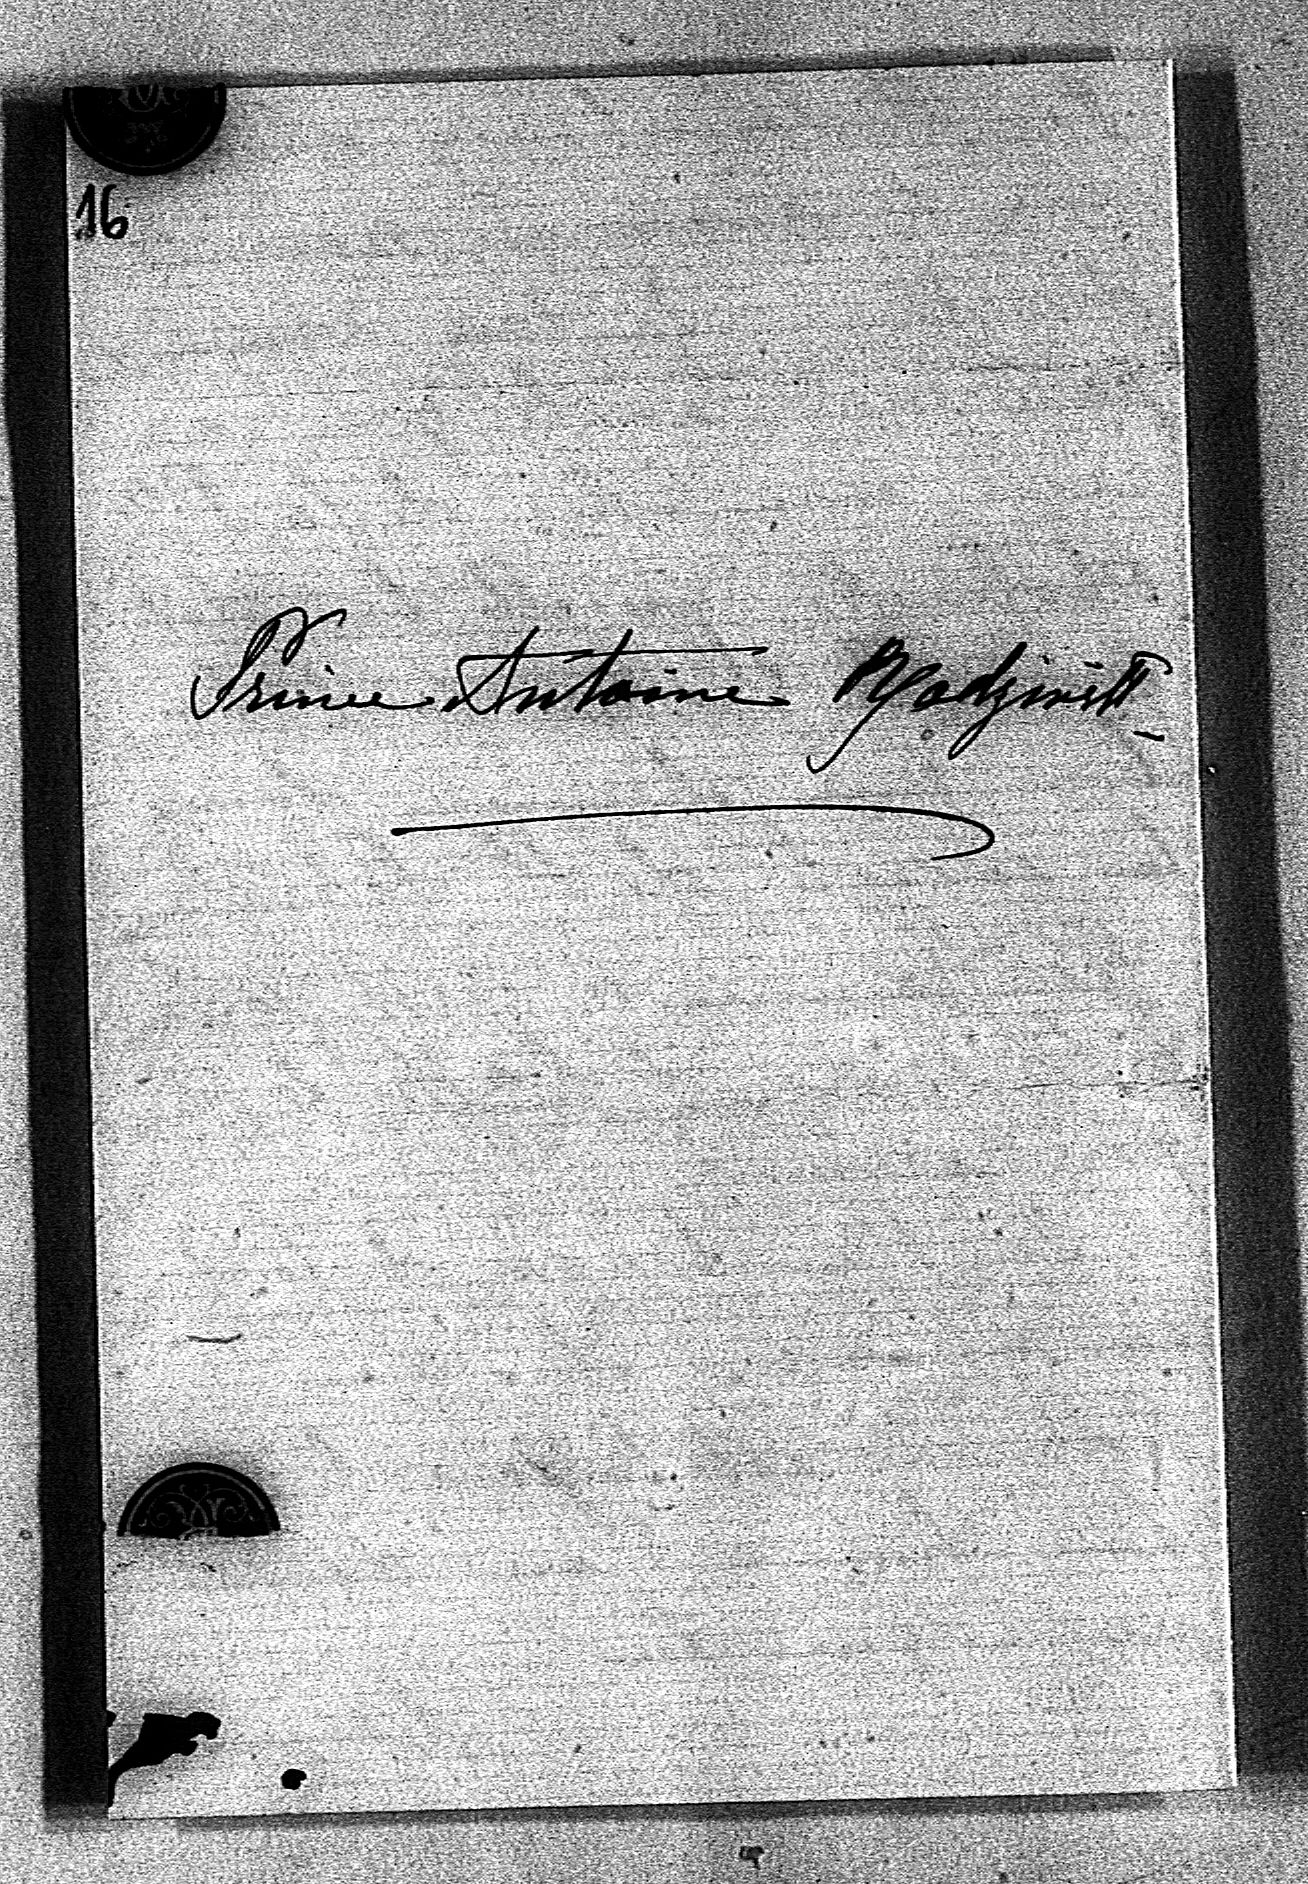 16
Prince Antoine Radziwill